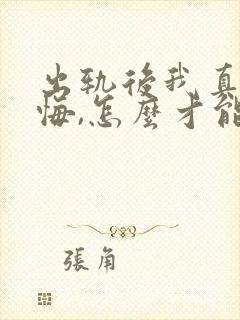 出軌後我真
悔,怎麼才能
張角